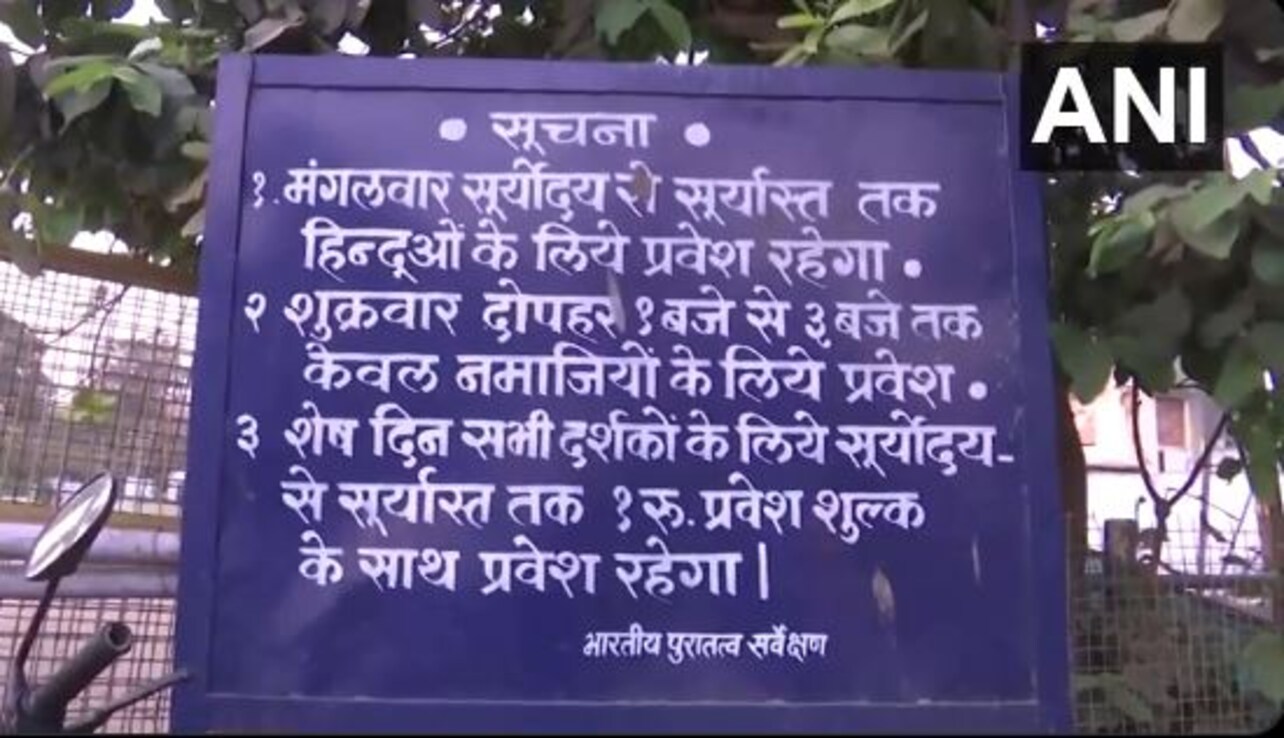 ANI
• सूचना •
१. मंगलवार सूर्योदय से सूर्यास्त तक
हिन्दूओं के लिये प्रवेश रहेगा •
२ शुक्रवार दोपहर १ बजे से ३ बजे तक
केवल नमाजियों के लिये प्रवेश •
३ शेष दिन सभी दर्शकों के लिये सूर्योदय-
से सूर्यास्त तक १ रू. प्रवेश शुल्क
के साथ प्रवेश रहेगा |
भारतीय पुरातत्व सर्वेक्षण